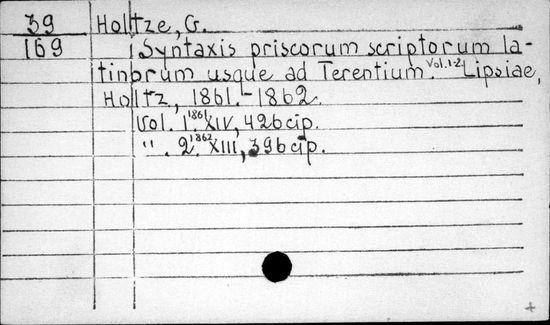 39 Holtze, G.
169 Syntaxis priscorum scriptorum la-
tinorum usque ad Terentium. Vol. 1-2 Lipsiae,
Holtz, 1861.-1862.
Vol. 1. 1861 XIV, 426 cip.
". 2. 1862 XIII, 396 cip.